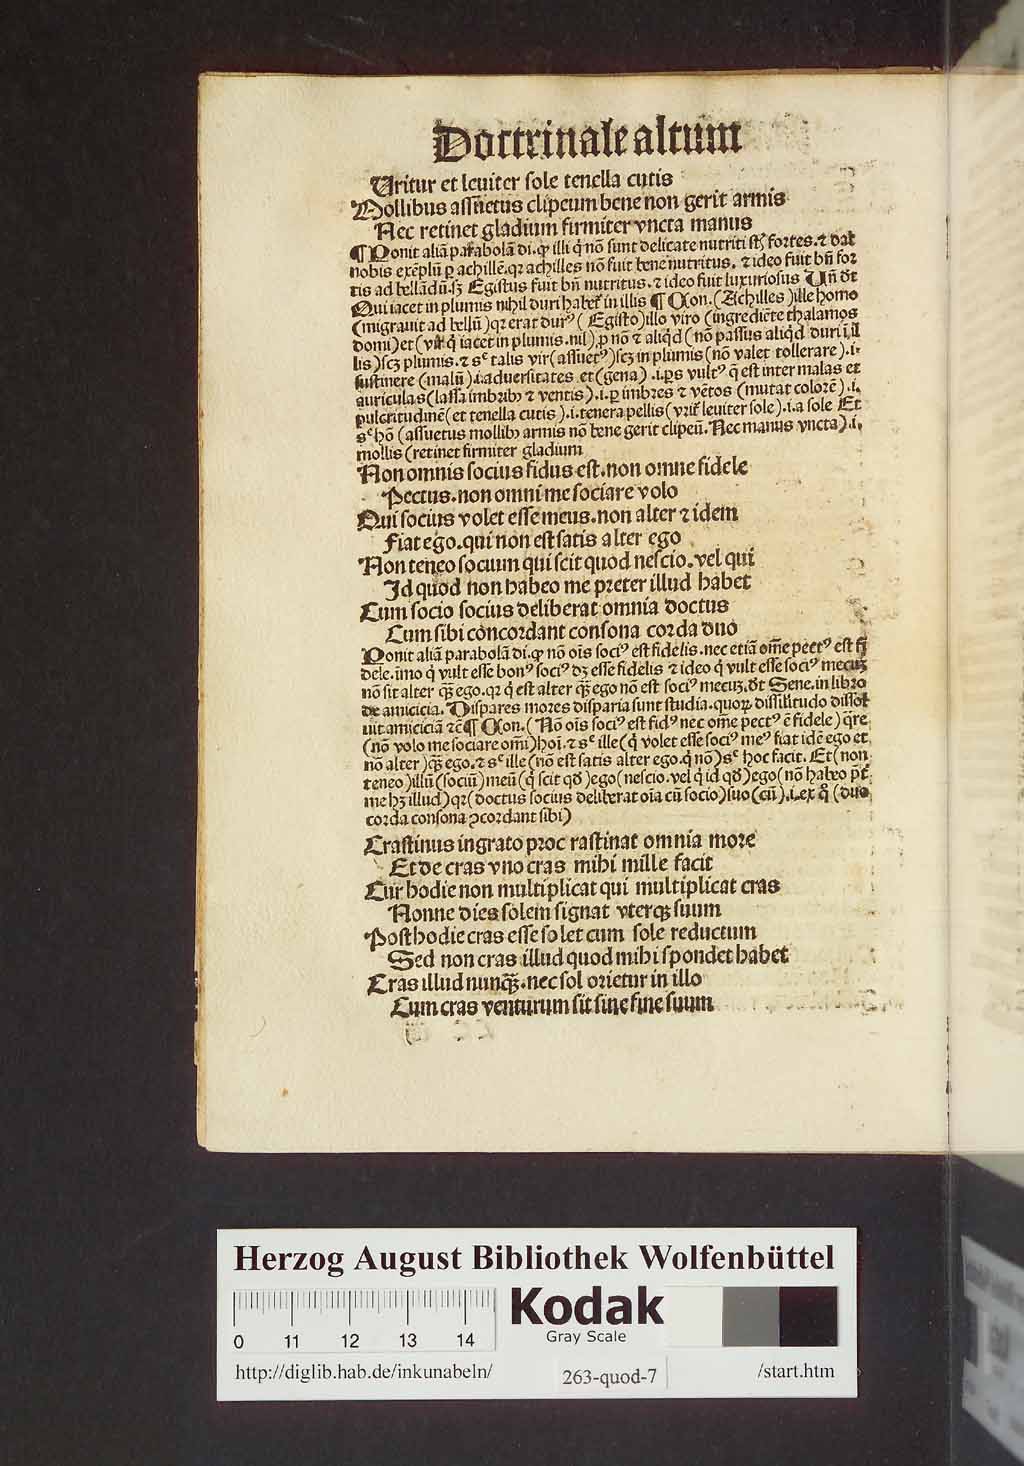 Doctrinale altum
Uritur et leuiter sole tenella cutis
Mollibus assuetus clipeum bene non gerit armis
Nec retinet gladium firmiter vncta manus
¶ Ponit aliā parabolā di. ꝙ illi q̄ nō sunt delicate nutriti st̄ fortes. ⁊ dat
nobis exēplū ꝑ achillē. qꝛ achilles nō fuit bene nutritus. ⁊ ideo fuit bn̄ for
tis ad bellādū. sꝫ Egistus fuit bn̄ nutritus. ⁊ ideo fuit luxuriosus Un̄ dt
Qui iacet in plumis nihil duri habet᷑ in illis ¶ Con. (Achilles) ille homo
(migrauit ad bellū) qꝛ erat durꝰ (Egisto) illo viro (ingrediēte thalamos
domi) et (vir q̄ iacet in plumis. nil) ꝓ nō ⁊ aliqd̄ (nō passus aliqd̄ duri ī il
lis) scꝫ plumis. ⁊ sͨ talis vir (assuetꝰ) scꝫ in plumis (nō valet tollerare) .i.
sustinere (malū) .i. aduersitates et (gena) .i. ꝑs vultꝰ q̄ est inter malas et
auriculas (lassa imbribꝫ ⁊ ventis) .i. ꝑ imbres ⁊ vētos (mutat colorē) .i.
pulcritudinē (et tenella cutis) .i. tenera pellis (vrit᷑ leuiter sole) .i. a sole Et
sͨ hō (assuetus mollibꝫ armis nō bene gerit clipeū. Nec manus vncta) .i.
mollis (retinet firmiter gladium
Non omnis socius fidus est. non omne fidele
Pectus. non omni me sociare volo
Qui socius volet esse meus. non alter ⁊ idem
Fiat ego. qui non est satis alter ego
Non teneo socium qui scit quod nescio. vel qui
Id quod non habeo me preter illud habet
Cum socio socius deliberat omnia doctus
Cum sibi concordant consona corda duo
Ponit aliā parabolā di. ꝙ nō oīs sociꝰ est fidelis. nec etiā om̄e pectꝰ est fi
dele. imo q̇ vult esse bonꝰ sociꝰ dꝫ esse fidelis ⁊ ideo q̇ vult esse sociꝰ mecuꝫ
nō sit alter qꝫ̄ ego. qꝛ q̇ est alter qꝫ̄ ego nō est sociꝰ mecuꝫ. dt Sene. in libro
de amicicia. Dispares mores disparia sunt studia. quoꝝ dissilitudo dissol
uit amiciciā ⁊c̄ ¶ Con. (Nō oīs sociꝰ est fidꝰ nec om̄e pectꝰ ē fidele) q̄re
(nō volo me sociare om̄i) hoī. ⁊ sͨ ille (q̇ volet esse sociꝰ meꝰ fiat idē ego et
nō alter) qꝫ̄ ego. ⁊ sͨ ille (nō est satis alter ego. q̇ nō) sͨ hoc facit. Et (non
teneo) illū (sociū) meū (q̇ scit qd̄) ego (nescio. vel q̇ id qd̄) ego (nō habeo p̄t̄
me hꝫ illud) qꝛ (doctus socius deliberat oīa cū socio) suo (cū) .i. ex q̊ (duo
corda consona ꝯcordant sibi)
Crastinus ingrato proc rastinat omnia more
Et de cras vno cras mihi mille facit
Cur hodie non multiplicat qui multiplicat cras
Nonne dies solem signat vterqꝫ suum
Post hodie cras esse so let cum sole reductum
Sed non cras illud quod mihi spondet habet
Cras illud nunqꝫ̄. nec sol orietur in illo
Cum cras venturum sit sine fine suum
Herzog August Bibliothek Wolfenbüttel
0 11 12 13 14
Kodak
Gray Scale
http://diglib.hab.de/inkunabeln/ 263-quod-7 /start.htm